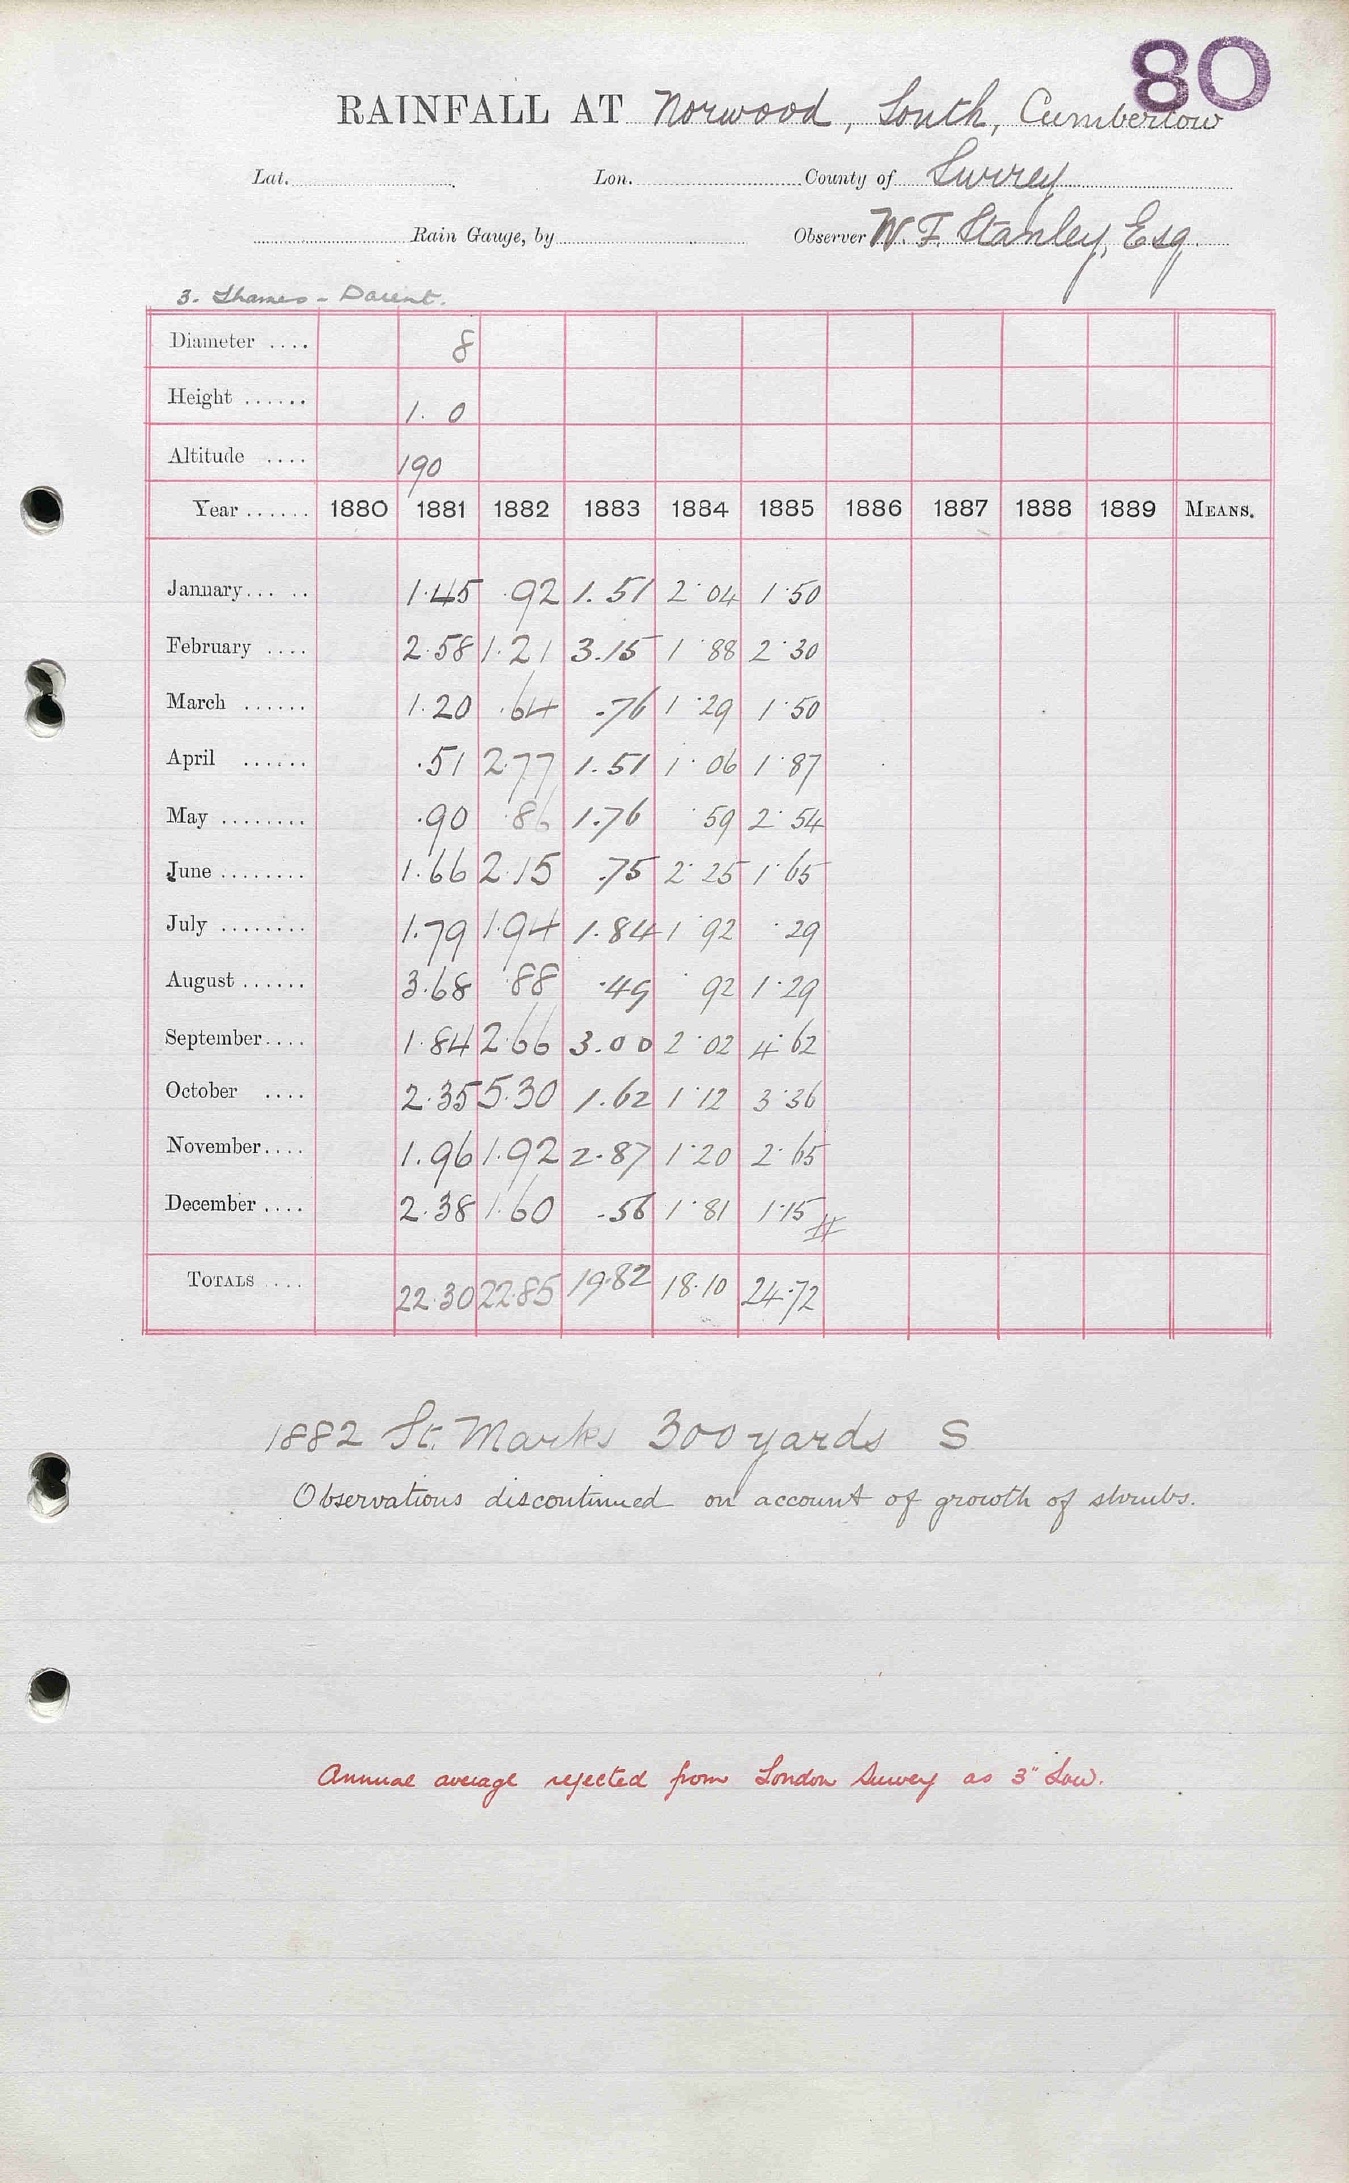 80
RAINFALL AT Norwood, South, Cumberlow
Lat. Lon. County of Surrey
Rain Gauge, by Observer W. F. Stanley, Esq.
3. Thames - Darent.
Diameter .... 8
Height ...... 1. 0
Altitude .... 190
Year ...... 1880 1881 1882 1883 1884 1885 1886 1887 1888 1889 MEANS.
January... .. 1.45 .92 1.51 2.04 1.50
February .... 2.58 1.21 3.15 1.88 2.30
March ...... 1.20 .64 .76 1.29 1.50
April ...... .51 2.77 1.51 1.06 1.87
May ........ .90 .86 1.76 .59 2.54
June ........ 1.66 2.15 .75 2.25 1.65
July ........ 1.79 1.94 1.84 1.92 .29
August ...... 3.68 .88 .49 .92 1.29
September.... 1.84 2.66 3.00 2.02 4.62
October .... 2.35 5.30 1.62 1.12 3.36
November.... 1.96 1.92 2.87 1.20 2.65
December .... 2.38 1.60 .56 1.81 1.15
TOTALS .... 22.30 22.85 19.82 18.10 24.72
1882 St. Marks 300 yards S
Observations discontinued on account of growth of shrubs.
Annual average rejected from London Survey as 3" low.